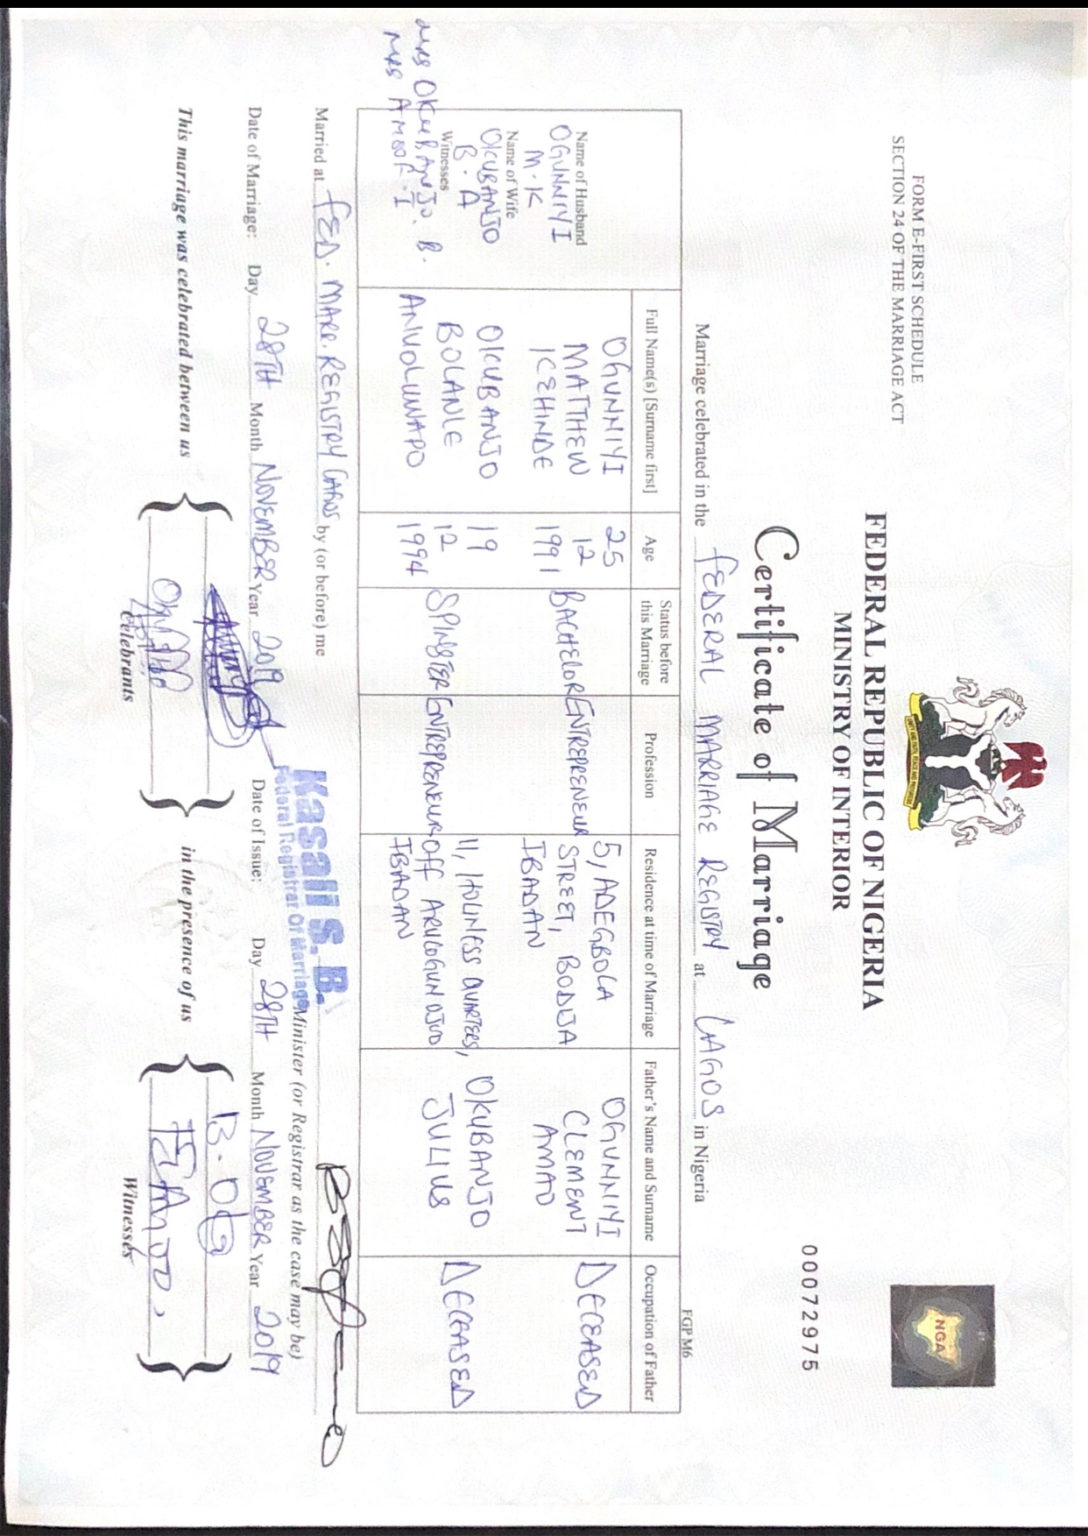 FORM E-FIRST SCHEDULE
SECTION 24 OF THE MARRIAGE ACT
FEDERAL REPUBLIC OF NIGERIA
MINISTRY OF INTERIOR
Certificate of Marriage
00072975
NGA
Marriage celebrated in the FEDERAL MARRIAGE REGISTRY at LAGOS in Nigeria
FGPM6
Full Name(s) [Surname first]
Age
Status before
this Marriage
Profession
Residence at time of Marriage
Father's Name and Surname
Occupation of Father
Name of Husband
OGUNNIYI
M.K
OGUNNIYI
MATTHEW
KEHINDE
25
12
1991
BACHELOR
ENTREPRENEUR
5, ADEGBOLA
STREET, BODIJA
IBADAN
OGUNNIYI
CLEMENT
AMAO
DECEASED
Name of Wife
OKUBANJO
B.A
OKUBANJO
BOLANLE
ANUOLUWAPO
19
12
1994
SPINSTER
ENTREPRENEUR
11, HOLINESS QUARTERS,
OFF ARULOGUN OJOO
IBADAN
OKUBANJO
JULIUS
DECEASED
Witnesses
MRS OKUBANJO. B.
MRS
Married at FED. MARR. REGISTRY LAGOS by (or before) me
Kasali S. B.
Federal Registrar Of Marriage
Minister (or Registrar as the case may be)
Date of Marriage: Day 28TH Month NOVEMBER Year 2019 Date of Issue: Day 28TH Month NOVEMBER Year 2019
This marriage was celebrated between us
Celebrants
in the presence of us
Witnesses